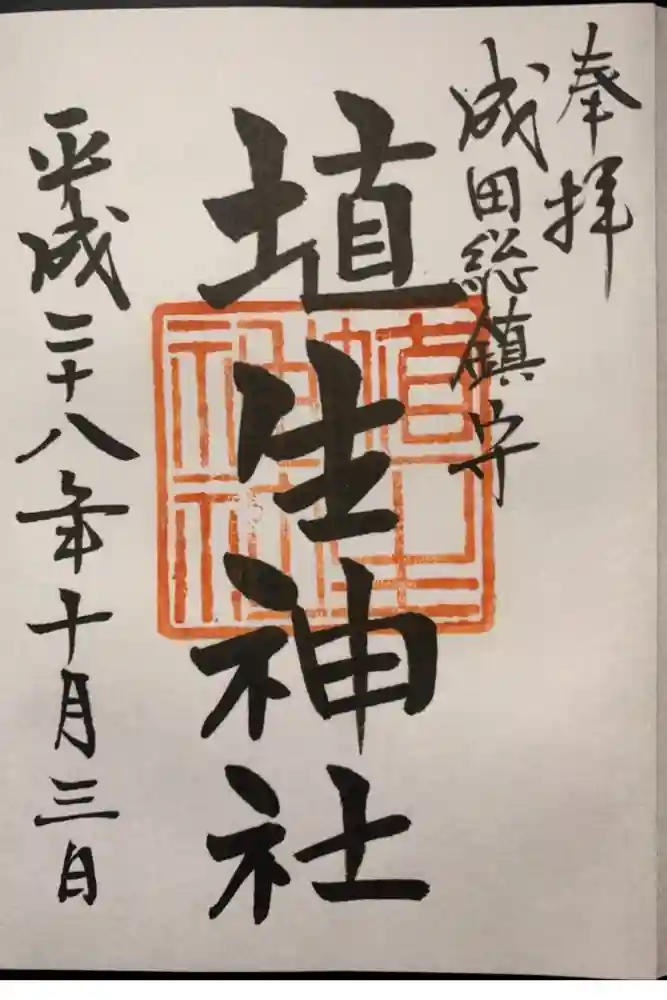 奉拝
成田総鎮守
埴生神社
埴生神社
平成二十八年十月三日